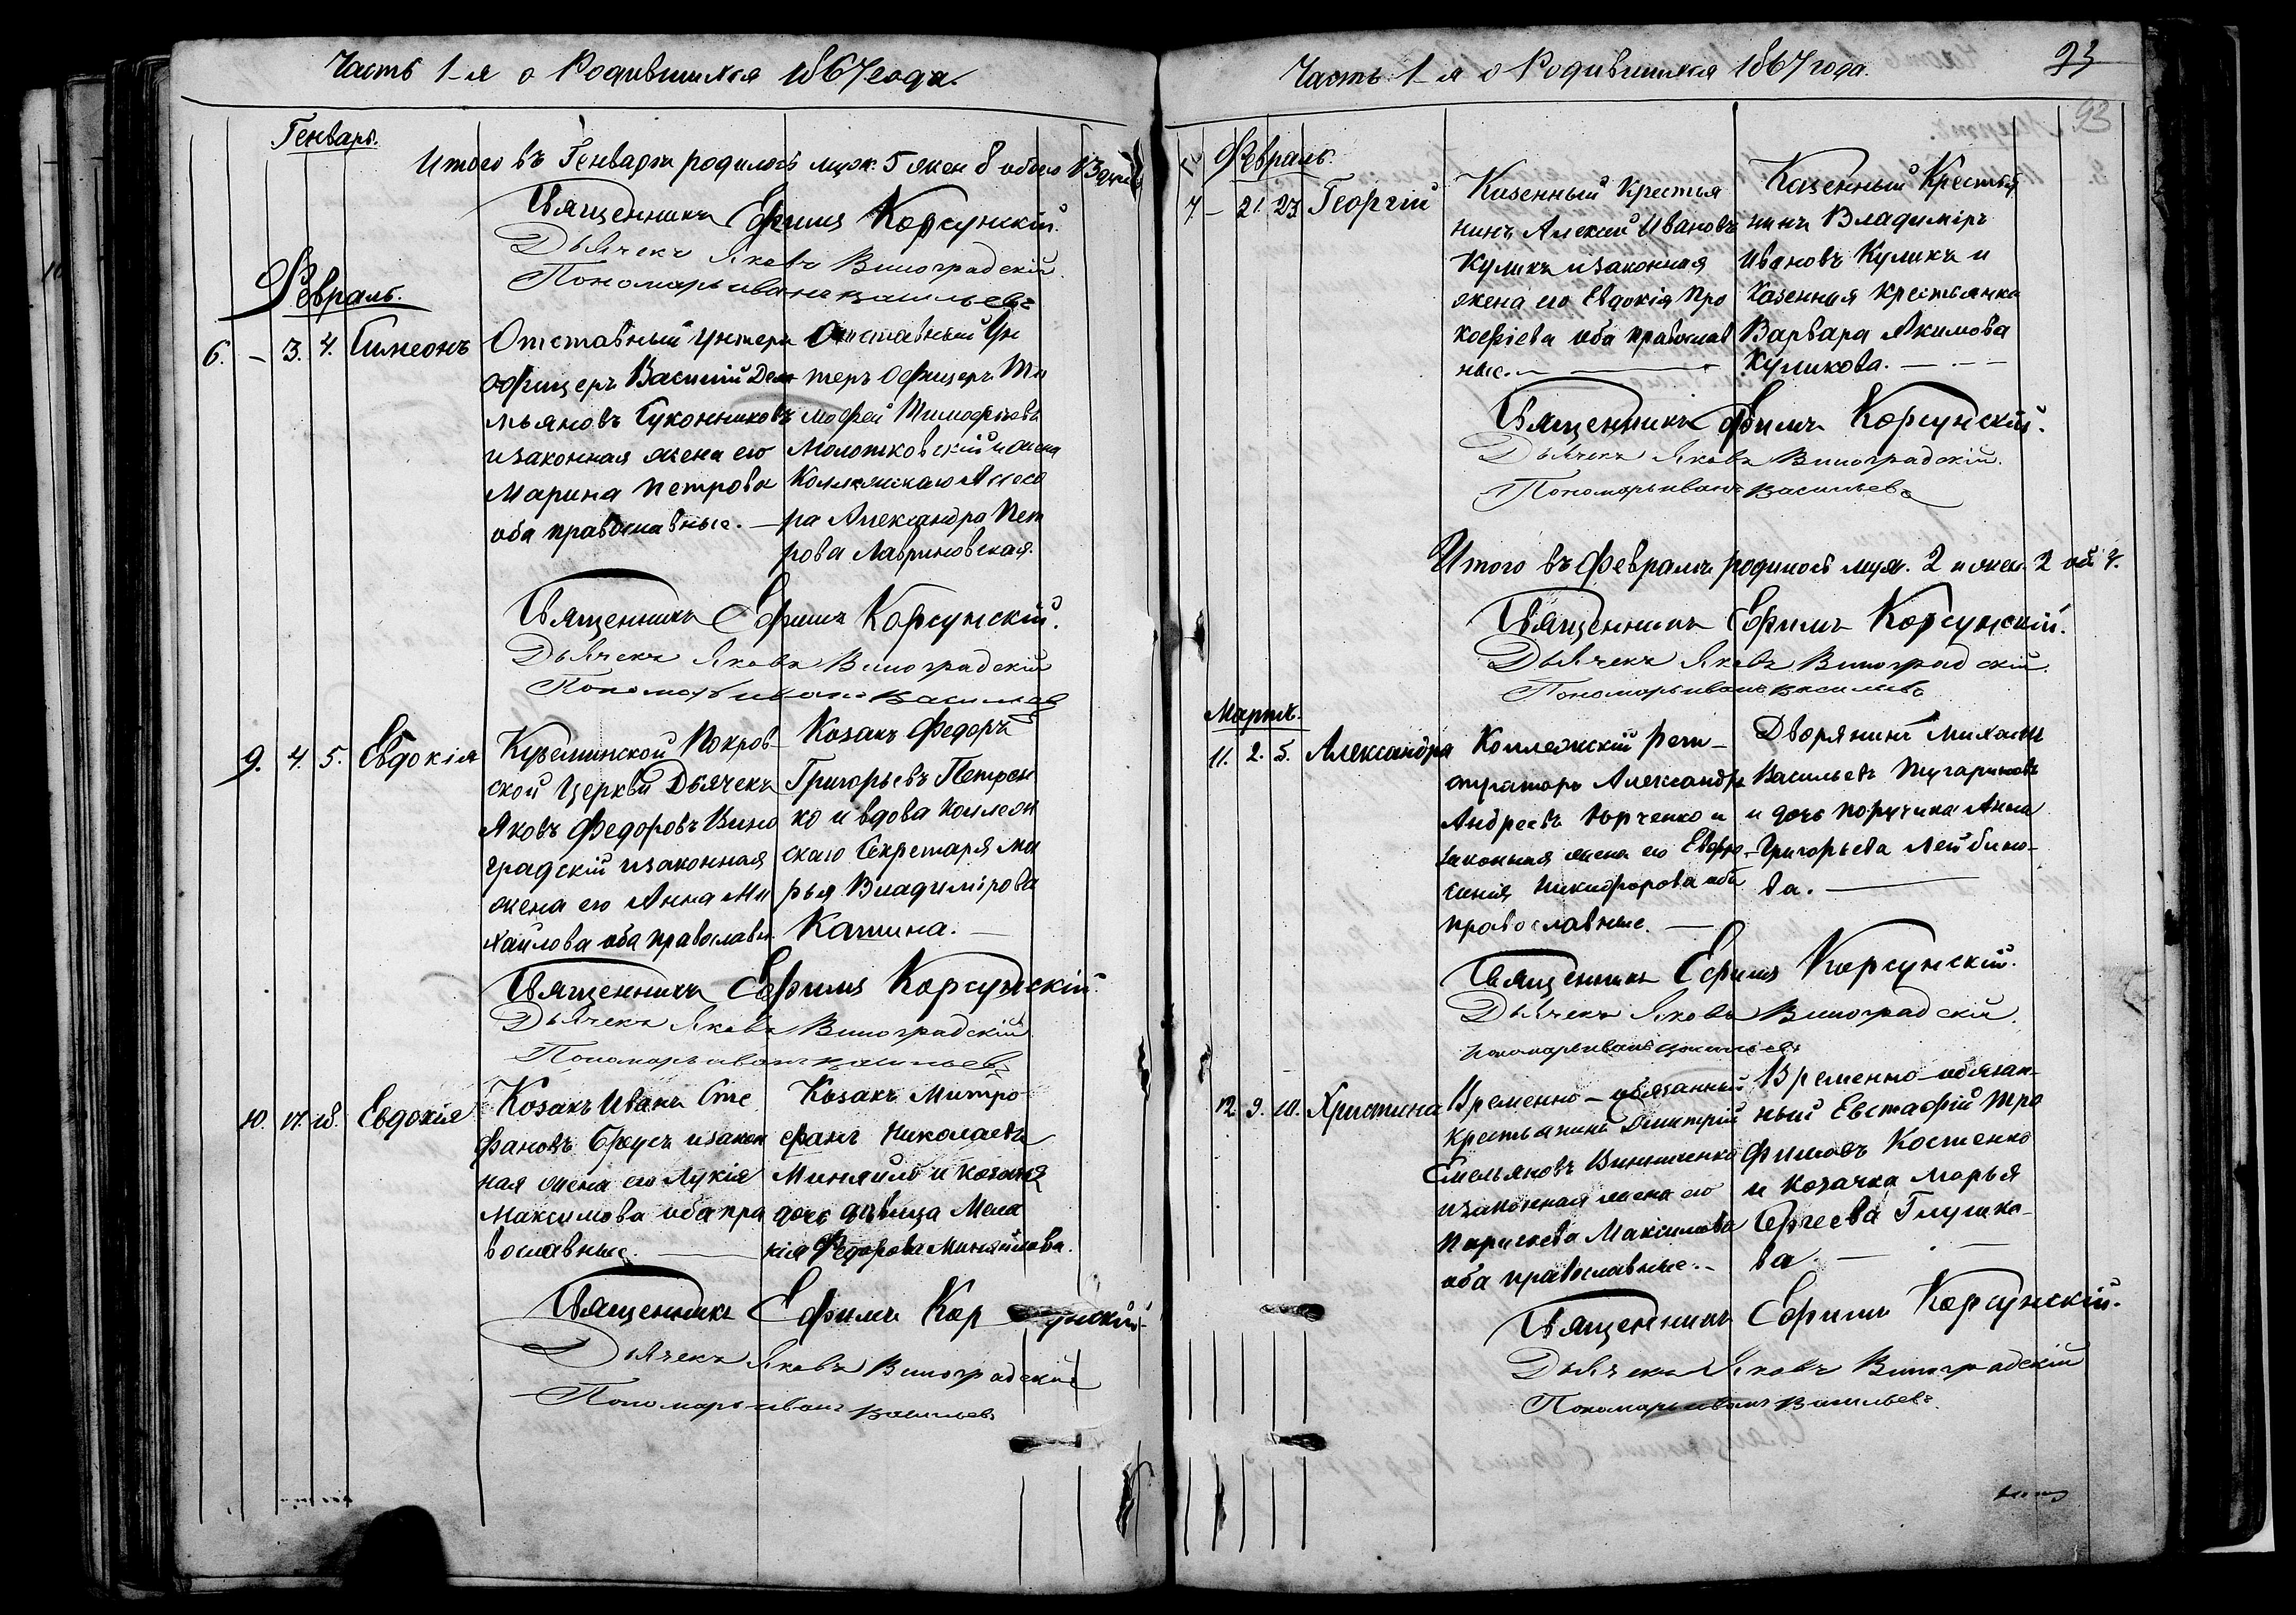 Часть 1-я о Родившихся 1867 года.
Генварь.
Итого въ Генваре родилось муж. 5 жен 8 обоего 13 душъ
Священникъ Ефимъ Корсунскій.
Дьячекъ Яковъ Виноградскій.
Пономарь Иванъ Васильевъ
Февраль.
6. – 3. 4. Симеонъ
Отставный унтеръ
офицеръ Василій Деме
мьяновъ Суконниковъ
и законная жена его
Марина Петрова
оба православные. —
Отставный Ун
теръ Офицеръ Ти
мофей Тимофѣевъ
Молотковскій и жена
Коллежскаго Ассесо
ра Александра Пет
рова Лавриновская.
Священникъ Ефимъ Корсунскій.
Дьячекъ Яковъ Виноградскій
Пономарь Иванъ Васильевъ
9. 4. 5. Евдокія
Куземинской Покров-
ской Церкви Дьячекъ
Яковъ Федоровъ Вино
градскій и законная
жена его Анна Ми
хайлова оба православн.
Козакъ Федоръ
Григорьевъ Петрен
ко и вдова Коллеж
скаго Секретаря Ма
рья Владимірова
Катина. —
Священникъ Ефимъ Корсунскій.
Дьячекъ Яковъ Виноградскій
Пономарь Иванъ Васильевъ
10. 17. 18. Евдокія
Козакъ Иванъ Сте
фановъ Брусъ и закон
ная жена его Лукія
Максимова оба пра
вославные. —
Козакъ Митро
фанъ Николаевъ
Миняйло и козачья
дочь дѣвица Мела
нія Федорова Миняйлова.
Священникъ Ефимъ Корсунскій.
Дьячекъ Яковъ Виноградскій
Пономарь Иванъ Васильевъ
Часть 1-я о Родившихся 1867 года.
93
93
Февраль.
7 – 21. 23. Георгій
Казенный Крестья
нинъ Алексій Ивановъ
Куликъ и законная
жена его Евдокія Про
кофіева оба православ
ные. —
Казенный Крестья
нинъ Владиміръ
Ивановъ Куликъ и
Казенная крестьянка
Варвара Акимова
Куликова. — — —
Священникъ Ефимъ Корсунскій.
Дьячекъ Яковъ Виноградскій.
Пономарь Иванъ Васильевъ
Итого въ Февралѣ родилось муж. 2 и жен. 2 об. 4.
Священникъ Ефимъ Корсунскій.
Дьячекъ Яковъ Виноградскій.
Пономарь Иванъ Васильевъ
Мартъ.
11. 2. 5. Александра
Коллежскій реги-
страторъ Александръ
Андреевъ Юрченко и
законная жена его Евфро-
синія Никифорова оба
православные. —
Дворянинъ Михаилъ
Васильевъ Пугариновъ
и дочь поручика Анна
Григорьева Лейбино-
ва. —
Священникъ Ефимъ Корсунскій.
Дьячекъ Яковъ Виноградскій.
Пономарь Иванъ Васильевъ
12. 9. 10. Христина
Временно-обязанный
Крестьянинъ Димитрій
Емельяновъ Винниченко
и законная жена его
Параскева Максимова
оба православные. –
Временно-обязан-
ный Евстафій Тро
фимовъ Костенко
и козачка Марья
Сергеева Глушко-
ва. — · —
Священникъ Ефимъ Корсунскій.
Дьячекъ Яковъ Виноградскій
Пономарь Иванъ Васильевъ.